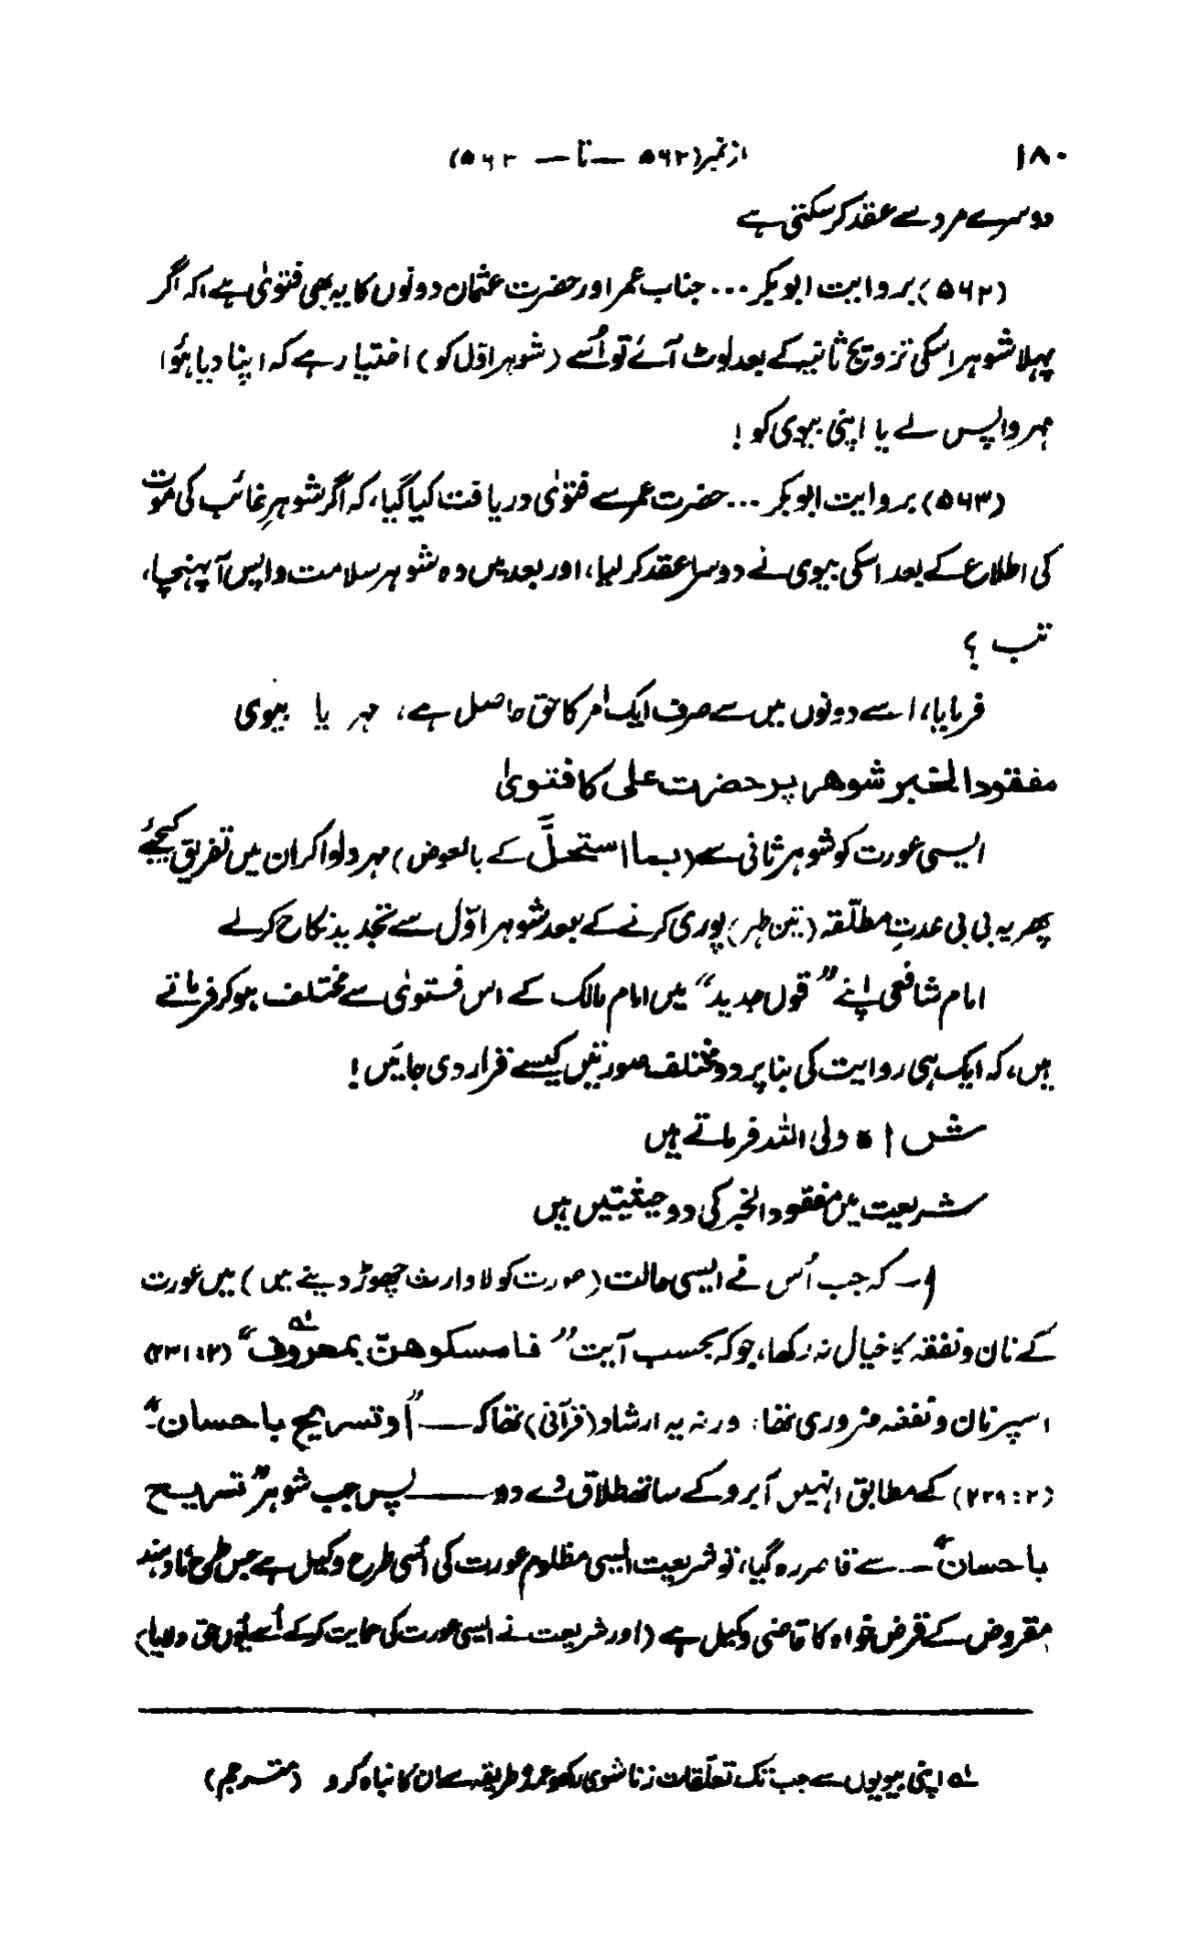 ۱۸۰ از نمبر (۵۶۲ — تا — ۵۶۳)
دوسرے مرد سے عقد کر سکتی ہے
(۵۶۲) بروایت ابوبکر ... جناب عمر اور حضرت عثمان دونوں کا یہ بھی فتویٰ ہے، کہ اگر
پہلا شوہر اسکی تزویج ثانیہ کے بعد لوٹ آئے تو اُسے (شوہر اوّل کو) اختیار ہے کہ اپنا دیا ہُوا
مہر واپس لے یا اپنی بیوی کو !
(۵۶۳) بروایت ابوبکر ... حضرت عمر سے فتویٰ دریافت کیا گیا، کہ اگر شوہرِ غائب کی موت
کی اطلاع کے بعد اسکی بیوی نے دوسرا عقد کر لیا، اور بعد میں وہ شوہر سلامت واپس آ پہنچا،
تب ؟
فرمایا، اسے دونوں میں سے صرف ایک امر کا حق حاصل ہے، مہر یا بیوی
مفقود الخبر شوہر پر حضرت علی کا فتویٰ
ایسی عورت کو شوہر ثانی سے (بما استحلَّ کے بالعوض) مہر دلوا کر ان میں تفریق کیجئے
پھر یہ بی بی عدتِ مطلّقہ (تین طہر) پوری کرنے کے بعد شوہر اوّل سے تجدید نکاح کرلے
امام شافعی اپنے ”قول جدید“ میں امام مالک کے اس فتویٰ سے مختلف ہو کر فرماتے
ہیں، کہ ایک ہی روایت کی بنا پر دو مختلف صورتیں کیسے قرار دی جائیں !
ش ا ہ ولی اللہ فرماتے ہیں
شریعت میں مفقود الخبر کی دو حیثیتیں ہیں
ا ـ کہ جب اُس نے ایسی حالت (عورت کو لاوارث چھوڑ دینے میں) میں عورت
کے نان و نفقہ کا خیال نہ رکھا، جو کہ بحسب آیت ”فامسکوھنّ بمعروف“ ؎۱ (۲۳۱:۲)
اسپر نان و نفقہ ضروری تھا؛ ورنہ یہ ارشاد (قرآنی) تھا کہ — ”او تسریح باحسان“
(۲۲۹:۲) کے مطابق انہیں آبرو کے ساتھ طلاق دے دو — پس جب شوہر ”تسریح
باحسان“ — سے قاصر رہ گیا، تو شریعت ایسی مظلوم عورت کی اُسی طرح وکیل ہے جس طرح نادہند
مقروض کے قرض خواہ کا قاضی وکیل ہے (اور شریعت نے ایسی عورت کی حمایت کر کے اُسے یُوں حق دلایا)
؎۱ اپنی بیویوں سے جب تک تعلّقات زناشوی رکھو عمدہ طریقہ سے ان کا نباہ کرو (مترجم)